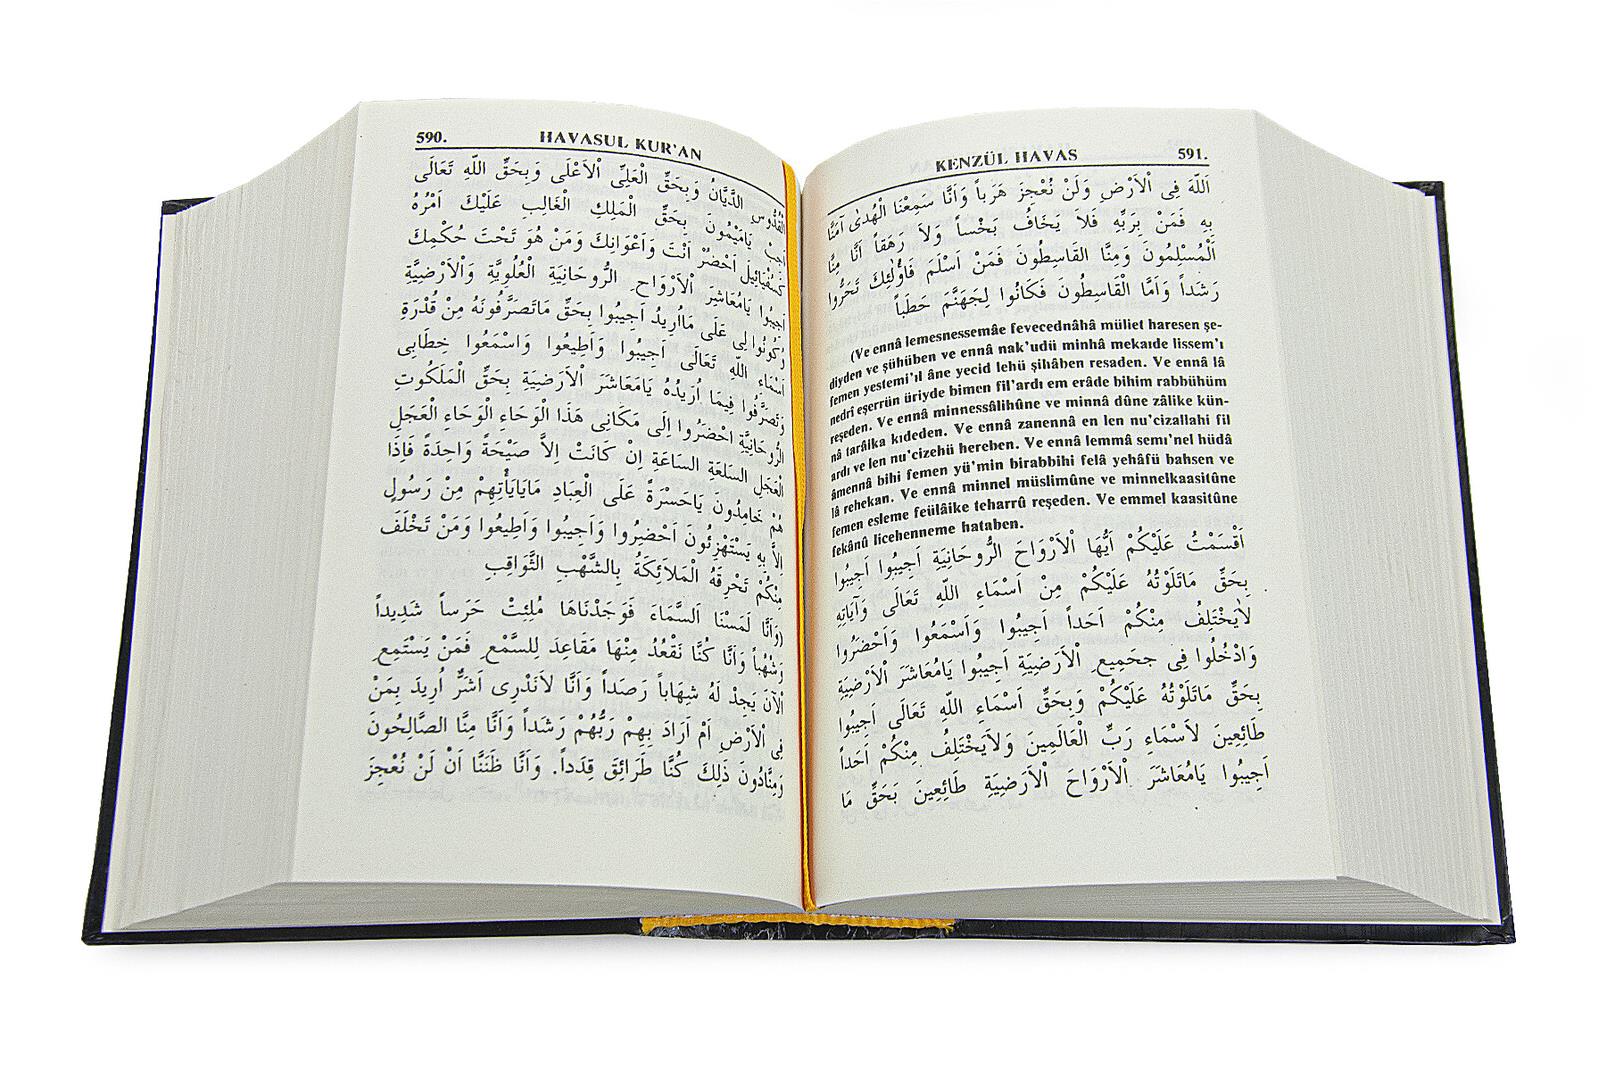 590. HAVASUL KUR'AN
الْقُدُّوسِ الدَّيَّانُ وَبِحَقِّ الْعَلِيِّ الْاَعْلَى وَبِحَقِّ اللّٰهِ تَعَالَى
اَجِبْ يَامَيْمُونَ بِحَقِّ الْمَلِكِ الْغَالِبِ عَلَيْكَ اَمْرُهُ
اَحْضُرْ اَنْتَ وَاَعْوَانِكَ وَمَنْ هُوَ تَحْتَ حُكْمِكَ
اَجِيبُوا يَامُعَاشِرَ الْاَرْوَاحِ الرُّوحَانِيَةِ الْعُلْوِيَّةِ وَالْاَرْضِيَّةِ
وَكُونُوا لِى عَلَى مَااُرِيدُ اَجِيبُوا بِحَقِّ مَاتَصَرَّفُونَهُ مِنْ قُدْرَةِ
اَسْمَاءِ اللّٰهِ تَعَالَى اَجِيبُوا وَاَطِيعُوا وَاسْمَعُوا خِطَابِى
وَتَصَرَّفُوا فِيمَا اُرِيدُهُ يَامَعَاشَرَ الْاَرْضِيَةِ بِحَقِّ الْمَلَكُوتِ
الرُّوحَانِيَّةِ احْضَرُوا اِلَى مَكَانِى هَذَا الْوَحَاءِ الْوَحَاءِ الْعَجَلِ
الْعَجَلِ السَلعَةِ السَاعَةِ اِنْ كَانَتْ اِلاَّ صَيْحَةً وَاحِدَةً فَاِذَا
هُمْ خَامِدُونَ يَاحَسْرَةً عَلَى الْعِبَادِ مَايَايَأْتِهِمْ مِنْ رَسُولٍ
اِلاَّ بِهِ يَسْتَهْزِئُونَ اَحْضِرُوا وَاَجِيبُوا وَاَطِيعُوا وَمَنْ تَخْلَفَ
مِنْكُمْ تَحْرِقَهُ الْمَلَائِكَةُ بِالشَّهْبِ الثَّوَاقِبِ
(وَاَنَّا لَمَسْنَا اَلسَّمَاءَ فَوَجَدْنَاهَا مُلِئِتْ حَرَساً شَدِيداً
وَشُهُباً وَاَنَّا كُنَّا نَقْعُدُ مِنْهَا مَقَاعِدَ لِلسَّمْعِ فَمَنْ يَسْتَمِعِ
الْاَنَ يَجِدْ لَهُ شِهَاباً رَصَداً وَاَنَّا لاَنَدْرِى اَشَرٌّ اُرِيدَ بِمَنْ
فِى الْاَرْضِ اَمْ اَرَادَ بِهِمْ رَبُّهُمْ رَشَداً وَاَنَّا مِنَّا الصَّالِحُونَ
وَمِنَّادُونَ ذَلِكَ كُنَّا طَرَائِقَ قِدَداً. وَاَنَّا ظَنَنَّا اَنْ لَنْ نُعْجِزَ
KENZÜL HAVAS 591.
اَللّٰهَ فِى الْاَرْضِ وَلَنْ نُعْجِزَ هَرَباً وَاَنَّا سَمِعْنَا الْهُدىٰ اٰمَنَّا
بِهِ فَمَنْ بِرَبِّهِ فَلاَ يَخَافُ بَخْساً وَلاَ رَهَقاً اَنَّا مِنَّا
الْمُسْلِمُونَ وَمِنَّا القَاسِطُونَ فَمَنْ اَسْلَمَ فَاوُلٰئِكَ تَحَرُّوا
رَشَداً وَاَمَّا الْقَاسِطُونَ فَكَانُوا لِجَهَنَّمَ حَطَباً
(Ve ennâ lemesnessemâe fevecednâhâ müliet haresen şe-
diyden ve şühüben ve ennâ nak'udü minhâ mekaıde lissem'ı
femen yestemi'ıl âne yecid lehü şihâben resaden. Ve ennâ lâ
nedrî eşerrün üriyde bimen fil'ardı em erâde bihim rabbühüm
reşeden. Ve ennâ minnessâlihûne ve minnâ dûne zâlike kün-
nâ tarâika kıdeden. Ve ennâ zanennâ en len nu'cizallahi fil
ardı ve len nu'cizehü hereben. Ve ennâ lemmâ semı'nel hüdâ
âmennâ bihi femen yü'min birabbihi felâ yehâfü bahsen ve
lâ rehekan. Ve ennâ minnel müslimûne ve minnelkaasitûne
femen esleme feülâike teharrû reşeden. Ve emmel kaasitûne
fekânû licehenneme hataben.
اَقْسَمْتُ عَلَيْكُمْ اَيُّهَا الْاَرْوَاحَ الرُّوحَانِيَةِ اَجِيبُوا اَجِيبُوا
بِحَقِّ مَاتَلَوْتُهُ عَلَيْكُمْ مِنْ اَسْمَاءِ اللّٰهِ تَعَالَى وَآيَاتِهِ
لاَيَخْتَلِفُ مِنْكُمْ اَحَداً اَجِيبُوا وَاَسْمَعُوا وَاَحْضَرُوا
وَادْخُلُوا فِى جحَمِيعِ الْاَرْضِيَةِ اَجِيبُوا يَامُعَاشَرَ الْاَرْضِيَةِ
بِحَقِّ مَاتَلَوْتُهُ عَلَيْكُمْ وَبِحَقِّ اَسْمَاءِ اللّٰهِ تَعَالَى اَجِيبُوا
طَائِعِينَ لاَسْمَاءِ رَبِّ الْعَالَمِينَ وَلاَيَخْتَلِفُ مِنْكُمْ اَحَداً
اَجِيبُوا يَامُعَاشَرَ الْاَرْوَاحَ الْاَرْضِيَةِ طَائِعِينَ بَحَقِّ مَا